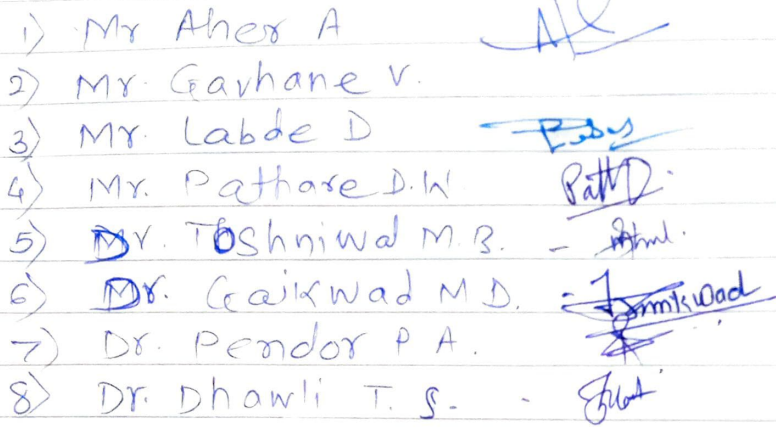 1) Mr Aher A
2) Mr. Gavhane V.
3) Mr. Labde D
4) Mr. Pathare D.W
5) Dr. Toshniwal M.B. -
6) Dr. Gaikwad M D.
7) Dr. Pendor P A.
8) Dr. Dhawli T. S. -